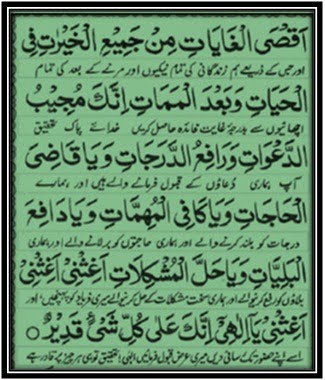 اَقْصَى الْغَايَاتِ مِنْ جَمِيْعِ الْخَيْرَاتِ فِى
اور جس کے ذریعے ہم زندگانی کی تمام نیکیوں اور مرنے کے بعد کی تمام
الْحَيَاتِ وَبَعْدَ الْمَمَاتِ اِنَّكَ مُجِيْبُ
اچھائیوں سے بدرجۂ غایت فائدہ حاصل کریں خدائے پاک بتحقیق
الدَّعْوَاتِ وَرَافِعُ الدَّرَجَاتِ وَيَا قَاضِىَ
آپ ہماری دُعاؤں کے قبول فرمانے والے ہیں اور ہمارے
الْحَاجَاتِ وَيَا كَافِىَ الْمُهِمَّاتِ وَيَا دَافِعَ
درجات کو بلند کرنے والے اور ہماری حاجتوں کو برلانے والے اور ہماری
الْبَلِيَّاتِ وَيَا حَلَّ الْمُشْكِلَاتِ اَغِثْنِىْ اَغِثْنِىْ
بلاؤں کو رفع کرنیوالے اور ہماری سخت مشکلات کے حل کرنیوالے میری فریاد کو پہنچیں اور
اَغِثْنِىْ يَا اِلٰهِىْ اِنَّكَ عَلٰى كُلِّ شَىْءٍ قَدِيْرٌ
اسے اپنے حضور تک رسائی دیں میری عرض قبول فرمائیں الٰہی بتحقیق تو ہی ہر چیز پر قادر ہے